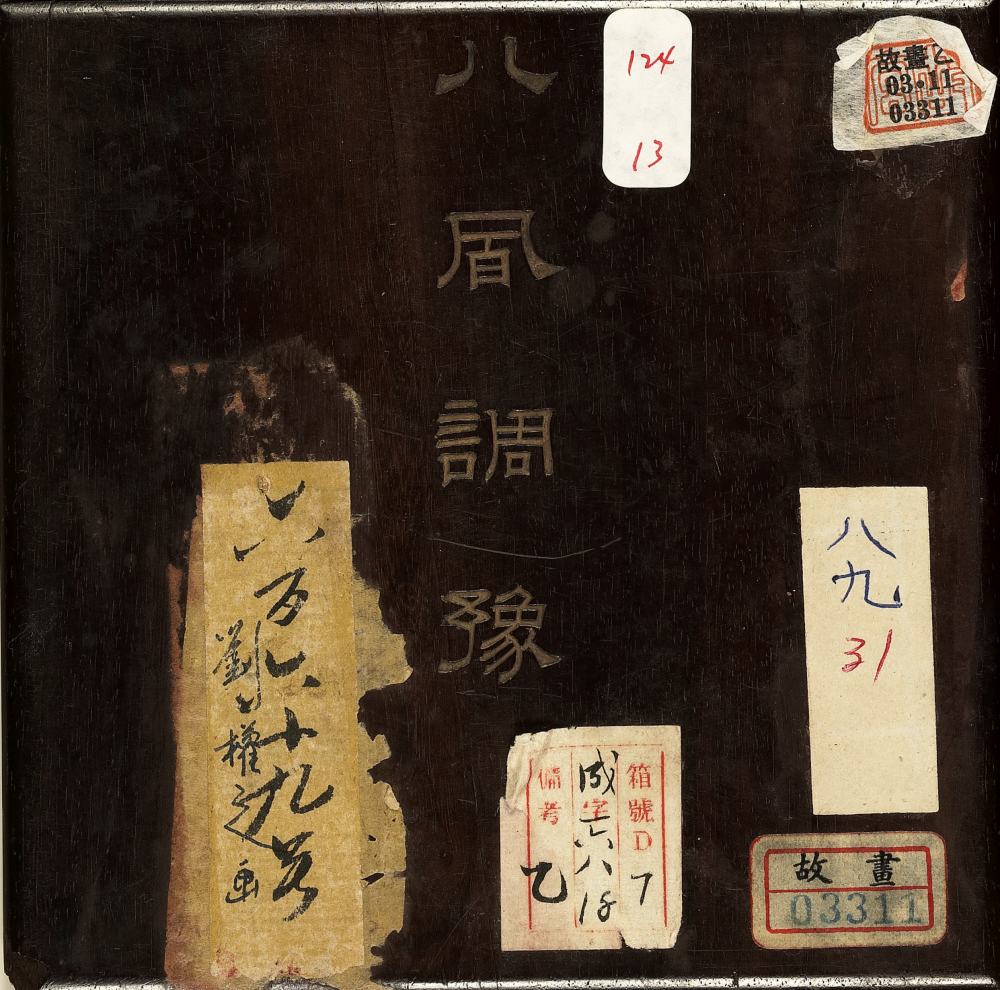 八風調豫
124
13
故畫乙
03•11
03311
八九
31
故畫
03311
箱號D 7
成字六八
備考 乙
六百六十九号
劉權之画